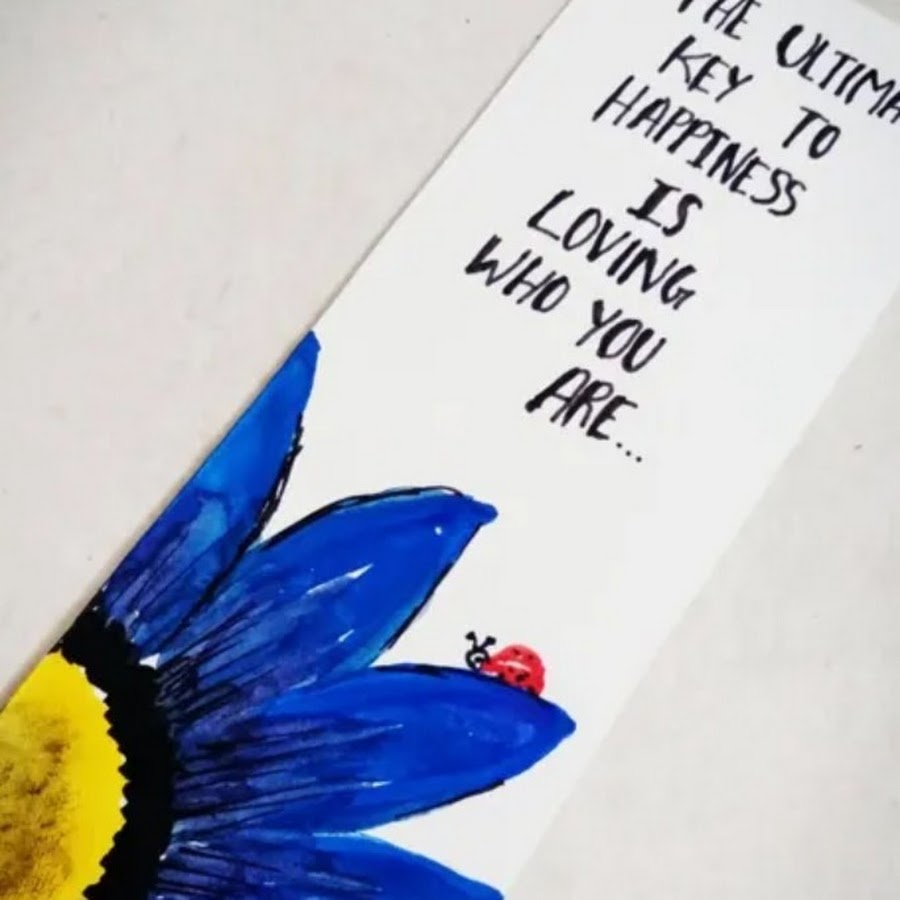 THE ULTIMA
KEY TO
HAPPINESS
IS
LOVING
WHO YOU
ARE...